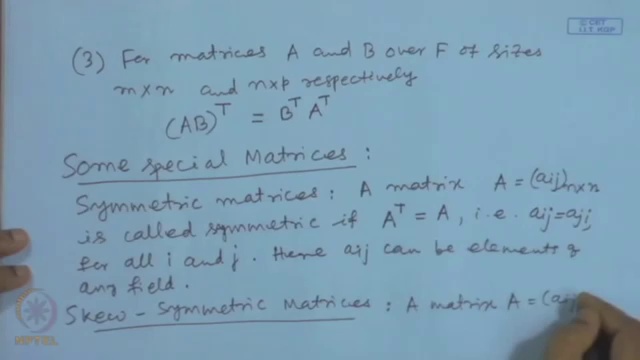 © CET
I.I.T. KGP
(3) For matrices A and B over F of sizes
m×n and n×p respectively
(AB)^T = B^T A^T
Some special Matrices :
Symmetric matrices : A matrix A = (aij)n×n
is called symmetric if A^T = A, i.e. aij = aji,
for all i and j. Here aij can be elements of
any field.
Skew-Symmetric Matrices : A matrix A = (aij
NPTEL